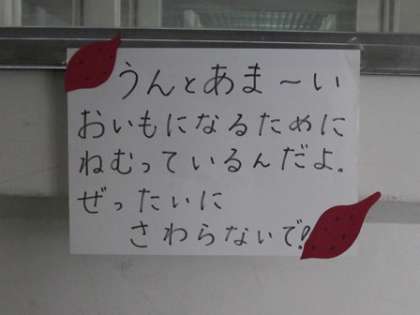 うんとあま〜い
おいもになるために
ねむっているんだよ.
ぜったいに
さわらないで!